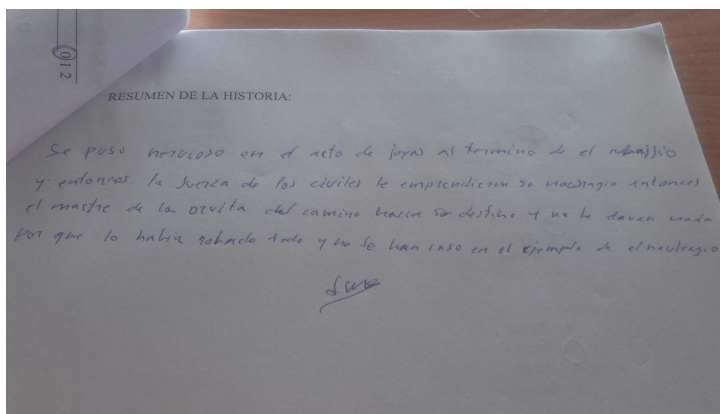 012
RESUMEN DE LA HISTORIA:
Se puso nervioso en el acto de joyas al termino de el
y entonces la fuerza de los civiles le emprendieron so entonces
el mastre de la del camino hacia so destino y no le davan nada
Por que lo habia robado todo y no se han caso en el ejemplo de el naufragio